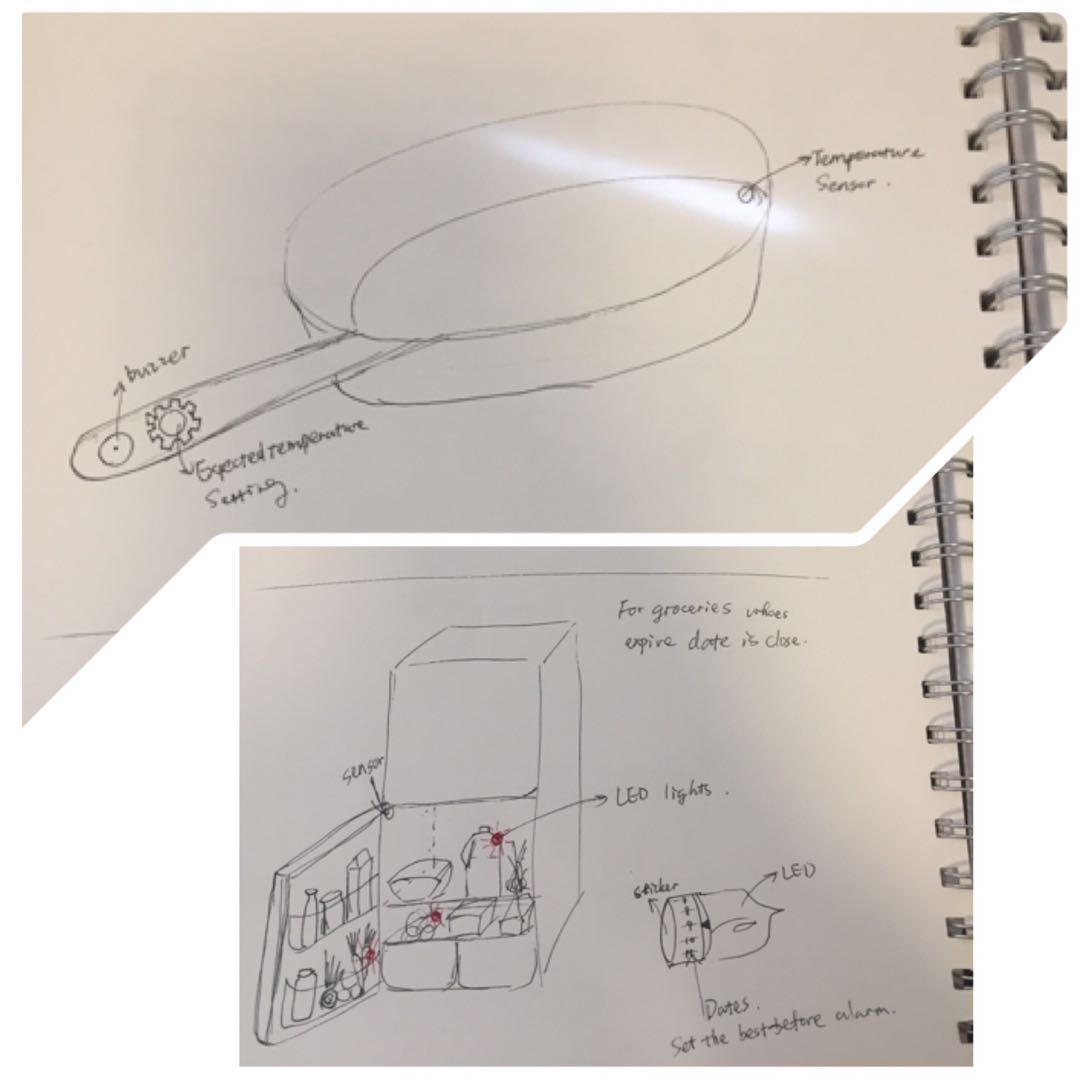 Temperature
Sensor.
buzzer
Expected temperature
Setting.
For groceries whoes
expire date is close.
sensor
LED lights.
sticker
LED
Dates.
Set the best-before alarm.